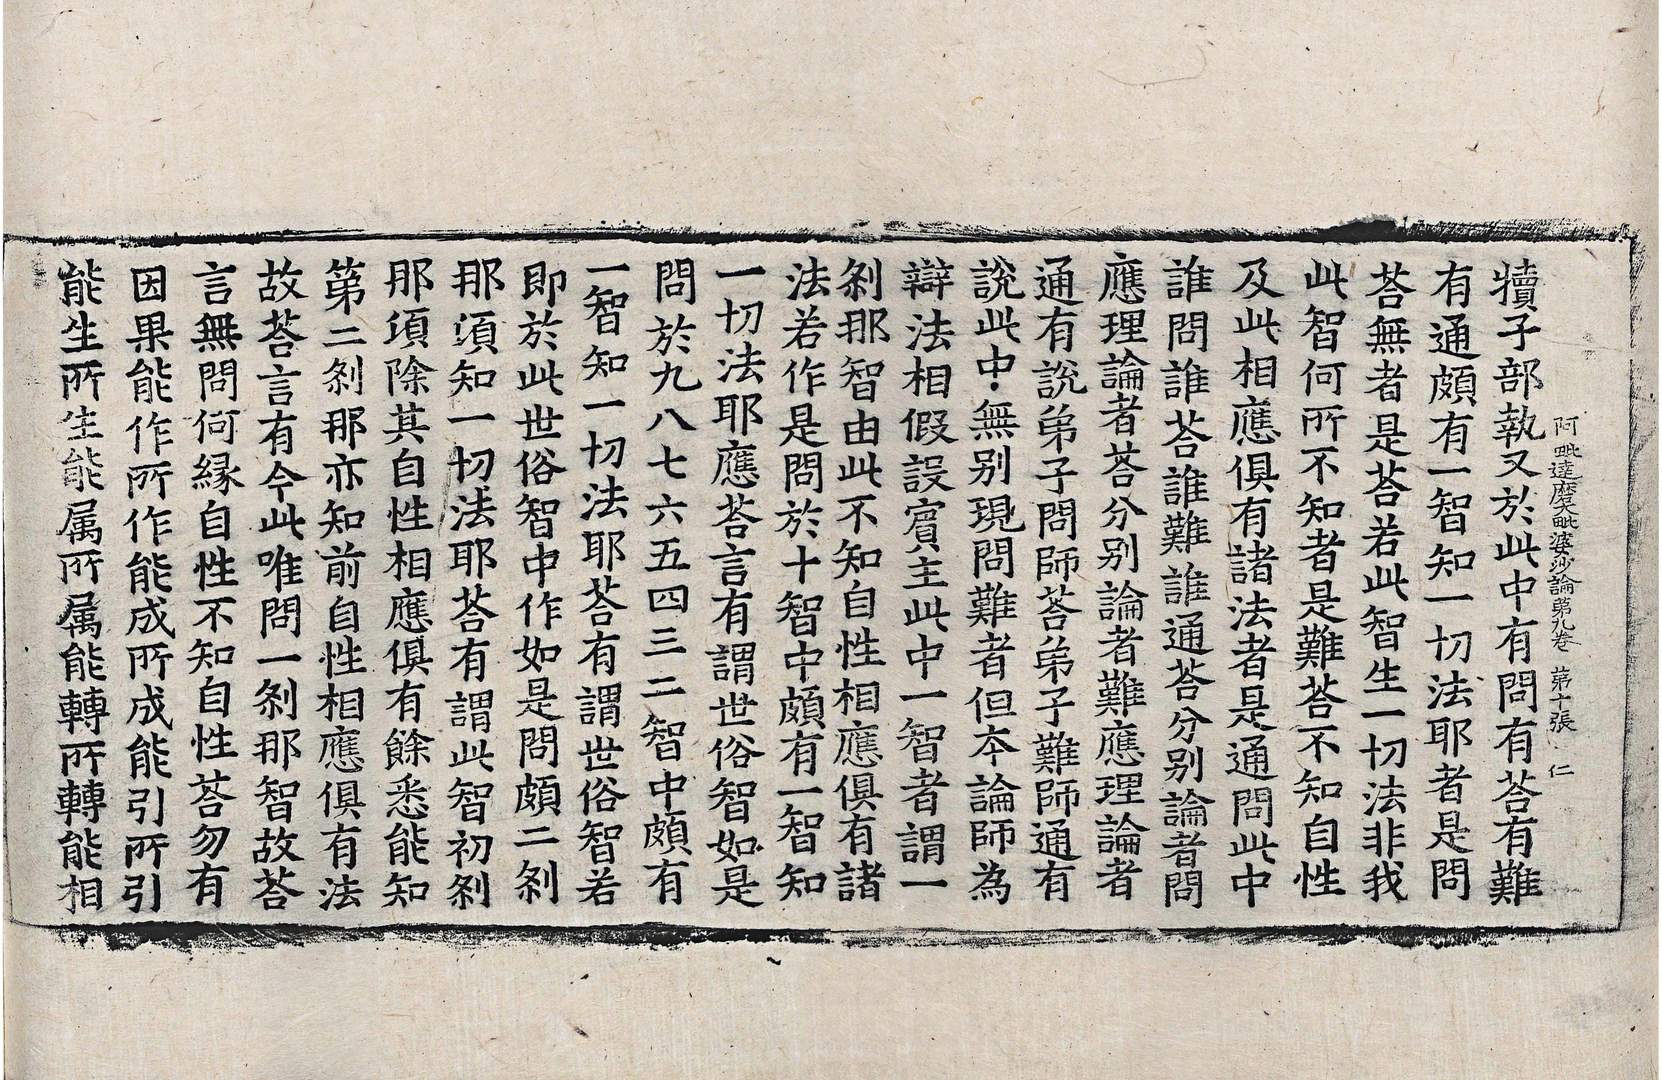 阿毗達磨大毗婆沙論第九卷 第十張 仁
犢子部執又於此中有問有荅有難
有通頗有一智知一切法耶者是問
荅無者是荅若此智生一切法非我
此智何所不知者是難荅不知自性
及此相應俱有諸法者是通問此中
誰問誰荅誰難誰通荅分别論者問
應理論者荅分别論者難應理論者
通有說弟子問師荅弟子難師通有
說此中無别現問難者但本論師為
辯法相假設賓主此中一智者謂一
刹那智由此不知自性相應俱有諸
法若作是問於十智中頗有一智知
一切法耶應荅言有謂世俗智如是
問於九八七六五四三二智中頗有
一智知一切法耶荅有謂世俗智若
即於此世俗智中作如是問頗二刹
那須知一切法耶荅有謂此智初刹
那須除其自性相應俱有餘悉能知
第二刹那亦知前自性相應俱有法
故荅言有今此唯問一刹那智故荅
言無問何縁自性不知自性荅勿有
因果能作所作能成所成能引所引
能生所生能属所属能轉所轉能相